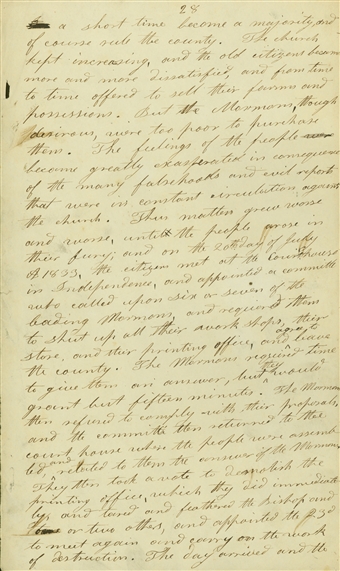 28
a short time become a majority, and
of course rule the county. The church
kept increasing, and the old citizens became
more and more dissatisfied, and from time
to time offered to sell their farms and
possessions. But the Mormons, though
desirous, were too poor to purchase
them. The feelings of the people
became greatly exasperated in consequence
of the many falsehoods and evil reports
that were in constant circulation against
the church. Thus matters grew worse
and worse, until the people arose in
their fury; and on the 20th day of July
1833, the citizens met at the court house
in Independence, and appointed a committee
who called upon six or seven of the
leading Mormons, and required them
to shut up all their work shops, their
store, and their printing office, and agree to leave
the county. The Mormons required time
to give them an answer, but they would
grant but fifteen minutes. The Mormons
then refused to comply with their proposals,
and the committee then returned to the
court house where the people were assemb
led and related to them the answer of the Mormons.
They then took a vote to demolish the
printing office, which they did immediate
ly, and tared and feathered the bishop and
or two others, and appointed the 23d
to meet again and carry on the work
of destruction. The day arrived and the